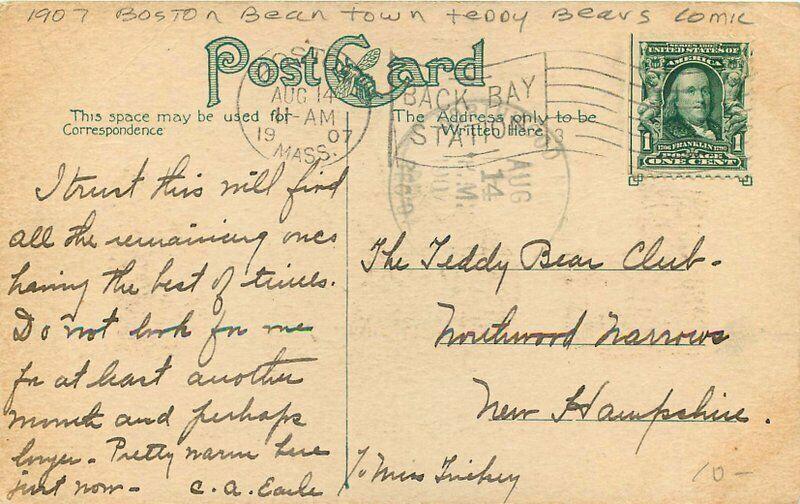 1907 Boston Bean Town Teddy Bears Comic
Post Card
This space may be used for
Correspondence
The Address only to be
Written Here
AUG 14
11-AM
19 07
MASS.
BACK BAY
STATION
3
AUG
14
SERIES 1902
UNITED STATES OF
AMERICA
1 FRANKLIN 1
POSTAGE
ONE CENT
I trust this will find
all the remaining ones
having the best of times.
Do not look for me
for at least another
month and perhaps
longer - Pretty warm here
just now - C. A. Earle
The Teddy Bear Club -
Northwood Narrows
New Hampshire.
To Miss Trickey
10-